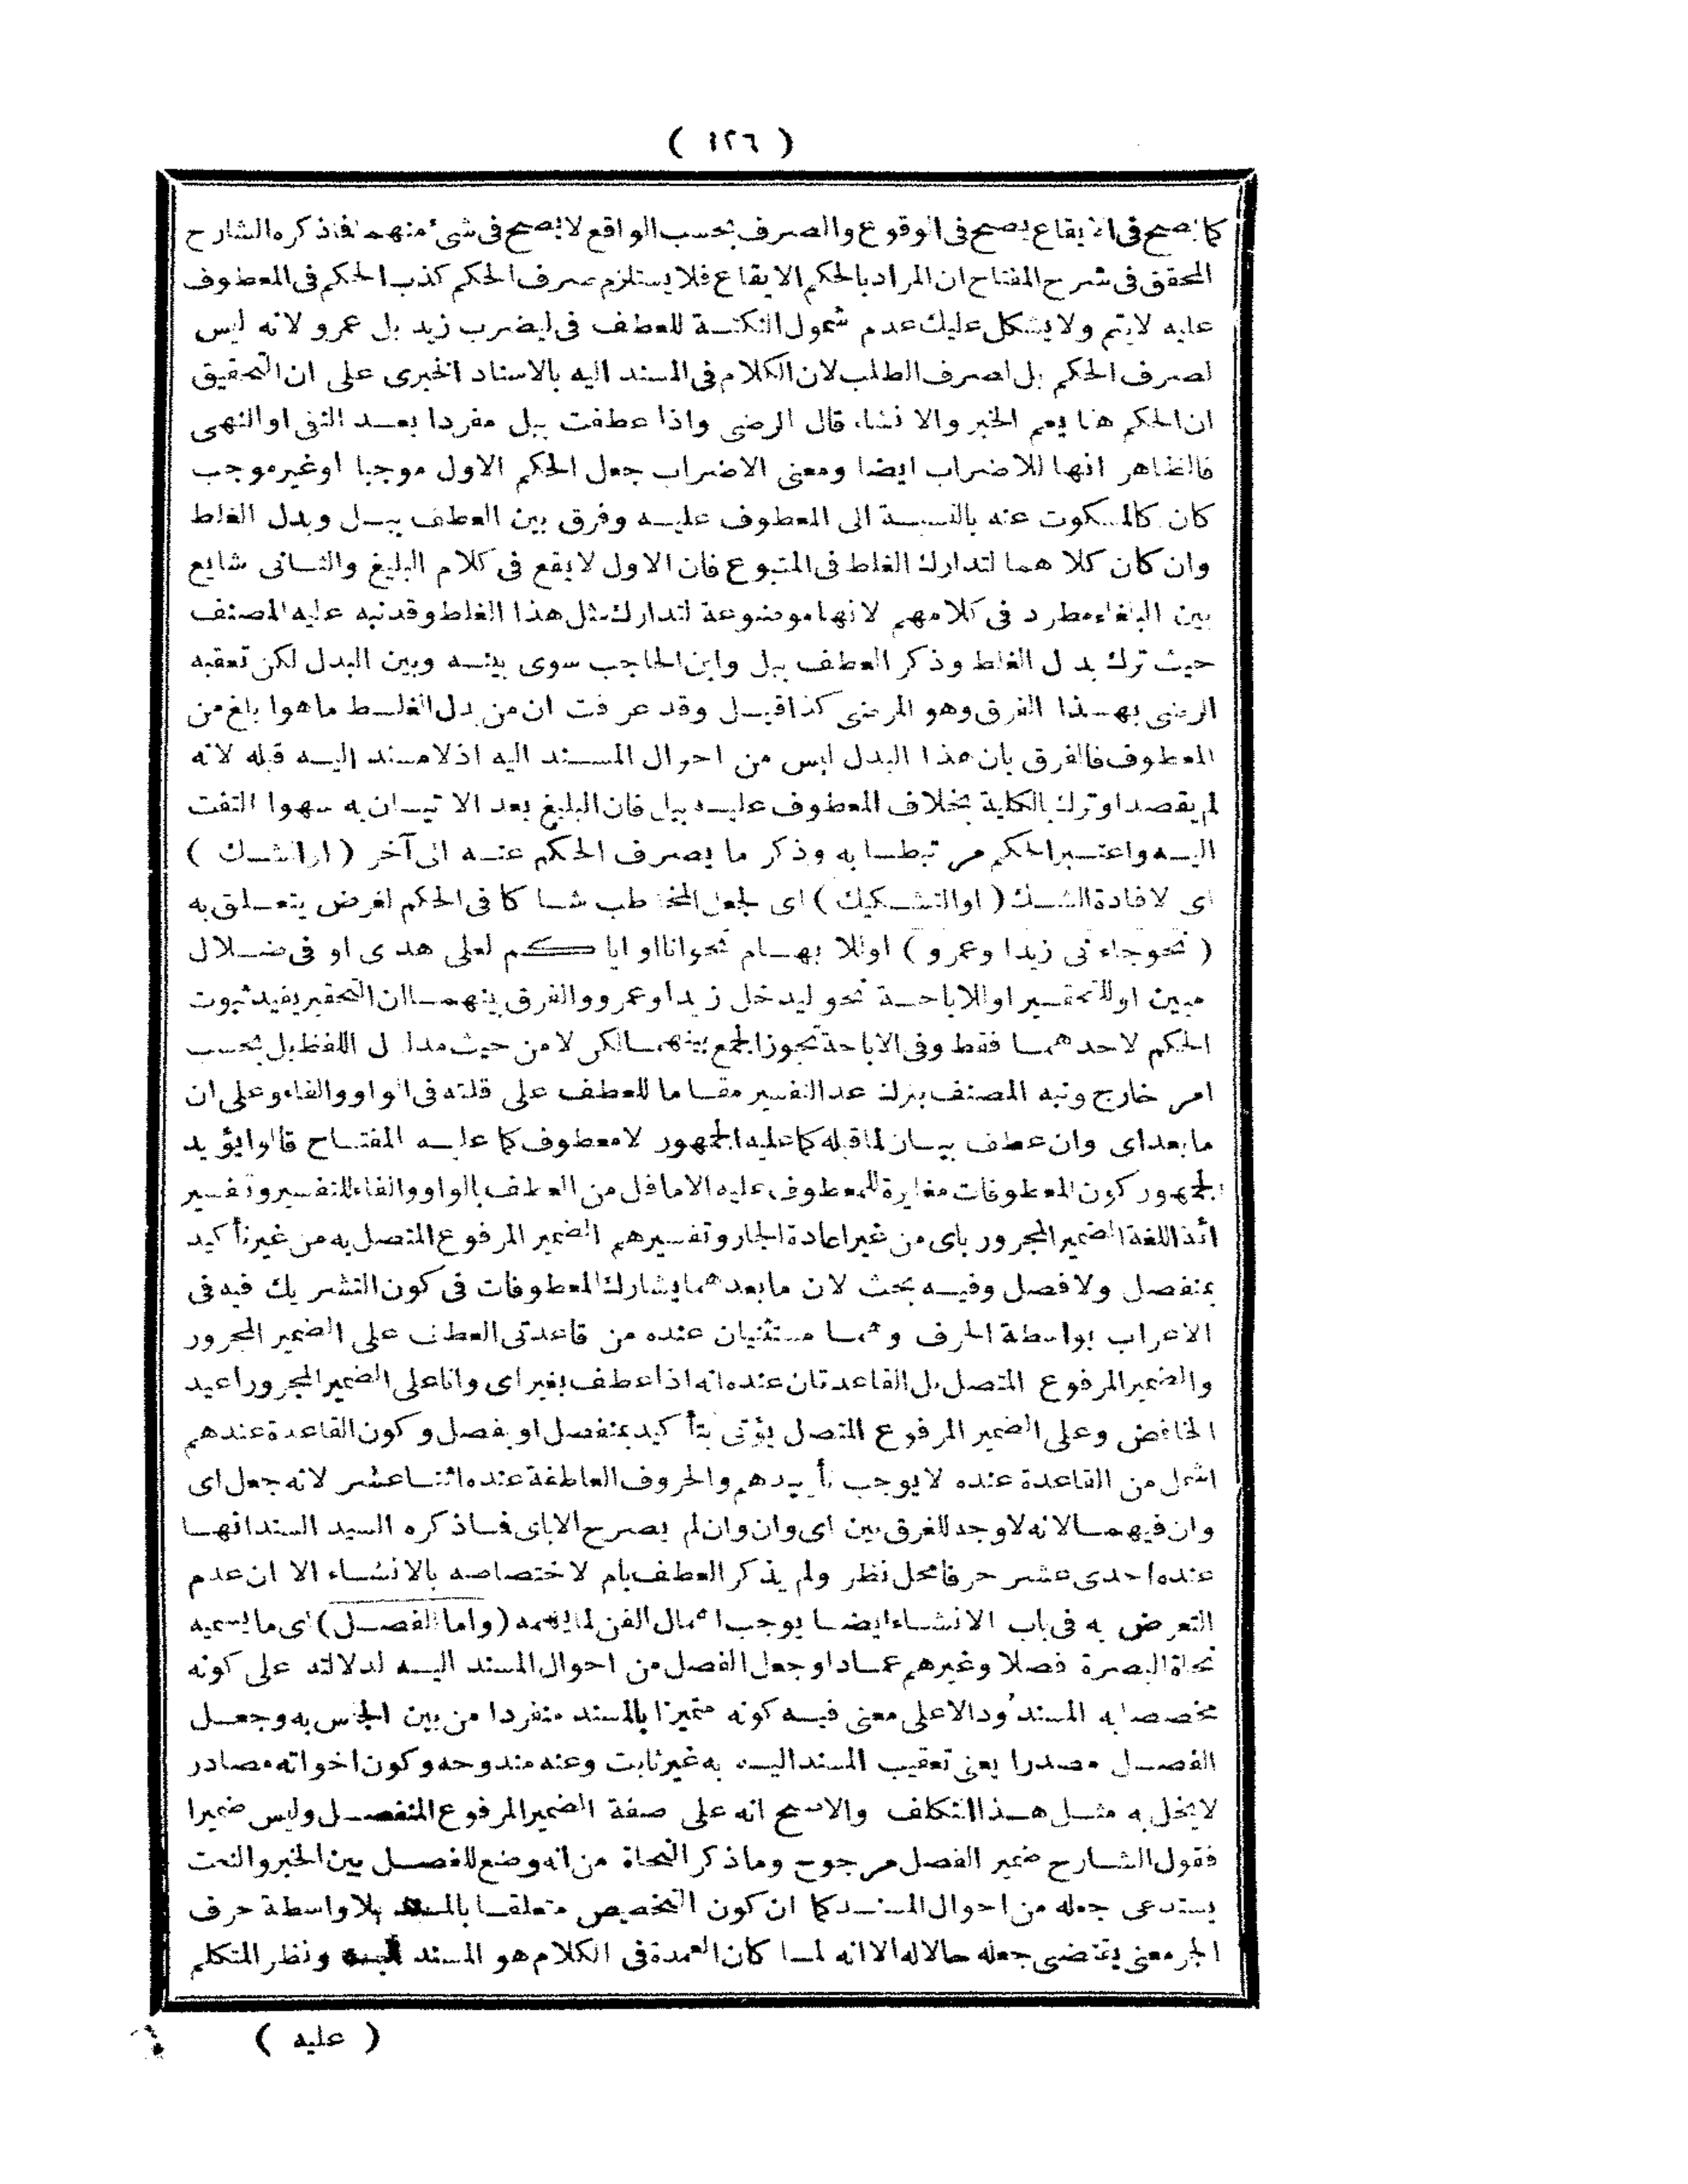 ( ١٢٦ )
كما يصح فى الايقاع يصح فى الوقوع والصرف بحسب الواقع لا يصح فى شئ منهما فما ذكره الشارح
المحقق فى شرح المفتاح ان المراد بالحكم الايقاع فلا يستلزم صرف الحكم كذب الحكم فى المعطوف
عليه لايتم ولا يشكل عليك عدم شمول النكتة للعطف فى ليضرب زيد بل عمرو لانه ليس
لصرف الحكم بل لصرف الطلب لان الكلام فى المسند اليه بالاسناد الخبرى على ان التحقيق
ان الحكم هنا يعم الخبر والانشاء قال الرضى واذا عطفت ببل مفردا بعد النفى او النهى
فالظاهر انها للاضراب ايضا ومعنى الاضراب جعل الحكم الاول موجبا او غير موجب
كان كالمسكوت عنه بالنسبة الى المعطوف عليه وفرق بين العطف ببل وبدل الغلط
وان كان كلاهما لتدارك الغلط فى المتبوع فان الاول لا يقع فى كلام البليغ والثانى شايع
بين البلغاء مطرد فى كلامهم لانها موضوعة لتدارك مثل هذا الغلط وقد نبه عليه المصنف
حيث ترك بدل الغلط وذكر العطف ببل وابن الحاجب سوى بينه وبين البدل لكن تعقبه
الرضى بهذا الفرق وهو المرضى كذا قيل وقد عرفت ان من بدل الغلط ما هو ابلغ من
المعطوف فالفرق بان هذا البدل ليس من احوال المسند اليه اذ لا مسند اليه قبله لانه
لم يقصد او ترك بالكلية بخلاف المعطوف عليه ببل فان البليغ بعد الاتيان به سهوا التفت
اليه واعتبر الحكم مرتبطا به وذكر ما يصرف الحكم عنه الى آخر ( او الشك )
اى لافادة الشك ( او التشكيك ) اى لجعل المخاطب شاكا فى الحكم لغرض يتعلق به
( نحو جاءنى زيد او عمرو ) او للابهام نحو انا او اياكم لعلى هدى او فى ضلال
مبين او للتخيير او للاباحة نحو ليدخل زيد او عمرو والفرق بينهما ان التخيير يفيد ثبوت
الحكم لاحدهما فقط وفى الاباحة يجوز الجمع بينهما لكن لا من حيث مدلول اللفظ بل بحسب
امر خارج ونبه المصنف بترك عد التفسير مقاما للعطف على قلته فى الواو والفاء وعلى ان
ما بعد اى وان عطف بيان لما قبله كما عليه الجمهور لا معطوف كما عليه المفتاح قالوا يؤيد
الجمهور كون المعطوفات مغايرة للمعطوف عليه الا ما قل من العطف بالواو والفاء للتفسير وتفسير
ائمة اللغة الضمير المجرور باى من غير اعادة الجار وتفسيرهم الضمير المرفوع المتصل به من غير تأكيد
بمنفصل ولا فصل وفيه بحث لان ما بعدهما يشارك المعطوفات فى كون التشريك فيه فى
الاعراب بواسطة الحرف وهما مستثنيان عنده من قاعدتى العطف على الضمير المجرور
والضمير المرفوع المتصل بل القاعدتان عنده انه اذا عطف بغير اى وان على الضمير المجرور اعيد
الخافض وعلى الضمير المرفوع المتصل يؤتى بتأكيد بمنفصل او بفصل وكون القاعدة عندهم
اشمل من القاعدة عنده لا يوجب تأييدهم والحروف العاطفة عنده اثنا عشر لانه جعل اى
وان فيهما لانه لا وجه للفرق بين اى وان وان لم يصرح الا باى فما ذكره السيد السند انها
عنده احدى عشر حرفا محل نظر ولم يذكر العطف بام لاختصاصه بالانشاء الا ان عدم
التعرض به فى باب الانشاء ايضا يوجب اهمال الفن لما يهمه ( واما الفصل ) اى ما يسميه
نحاة البصرة فصلا وغيرهم عمادا وجعل الفصل من احوال المسند اليه لدلالته على كونه
مخصصا به المسند ودالا على معنى فيه كونه متميزا بالمسند منفردا من بين الجنس به وجعل
الفصل مصدرا يعنى تعقيب المسند اليه به غير ثابت وعنه مندوحة وكون اخواته مصادر
لا يخل به مثل هذا التكلف والاصح انه على صفة الضمير المرفوع المنفصل وليس ضميرا
فقول الشارح ضمير الفصل مرجوح وما ذكر النحاة من انه وضع للفصل بين الخبر والنعت
يستدعى جعله من احوال المسند كما ان كون التخصيص متعلقا بالمسند بلا واسطة حرف
الجر معنى يقتضى جعله حالا له الا انه لما كان العمدة فى الكلام هو المسند اليه ونظر المتكلم
( عليه )